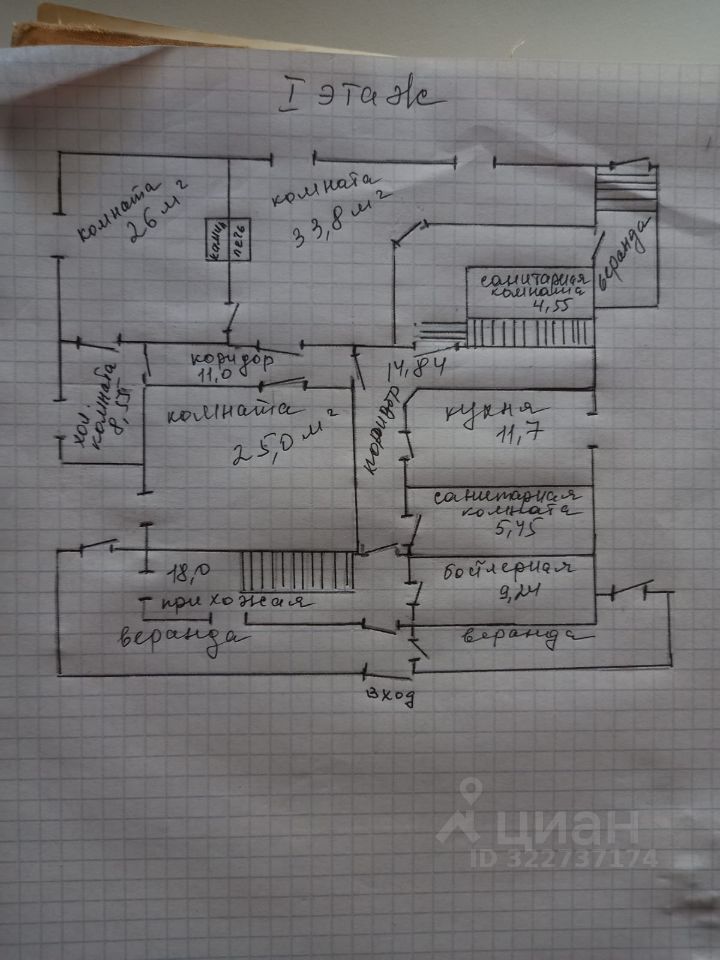 I этаж
комната
26 м²
комната
33,8 м²
камин
печь
веранда
санитарная
комната
4,55
коридор
11,0
14,84
коридор
хол.
комната
8,55
комната
25,0 м²
кухня
11,7
санитарная
комната
5,45
бойлерная
9,24
18,0
прихожая
веранда
веранда
вход
циан
ID 322737174